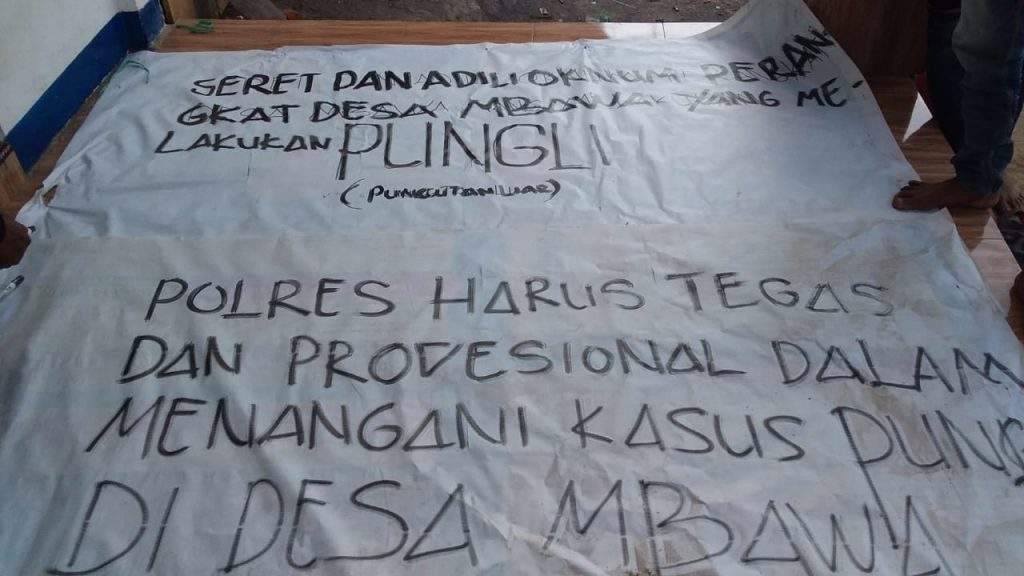 SERET DAN ADILI OKNUM PERAN
GKAT DESA MBAWA YANG ME-
LAKUKAN PUNGLI
(PUNGUTAN LIAR)
POLRES HARUS TEGAS
DAN PROVESIONAL DALAM
MENANGANI KASUS PUNG
DI DESA MBAWA